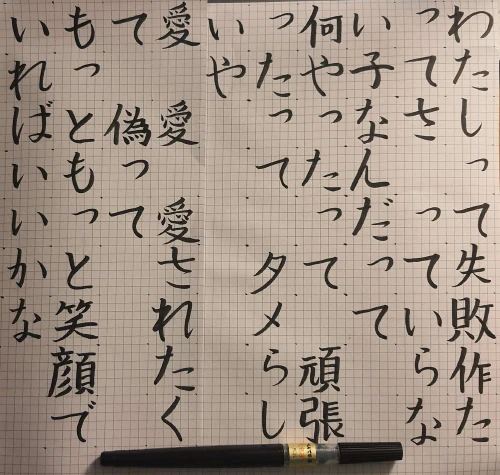 わたしって失敗作た
ってさっていらな
い子なんだって
何やったって 頑張
ったって タメらし
いや
愛 愛 愛されたく
て 偽って
もっともっと笑顔で
いればいいかな